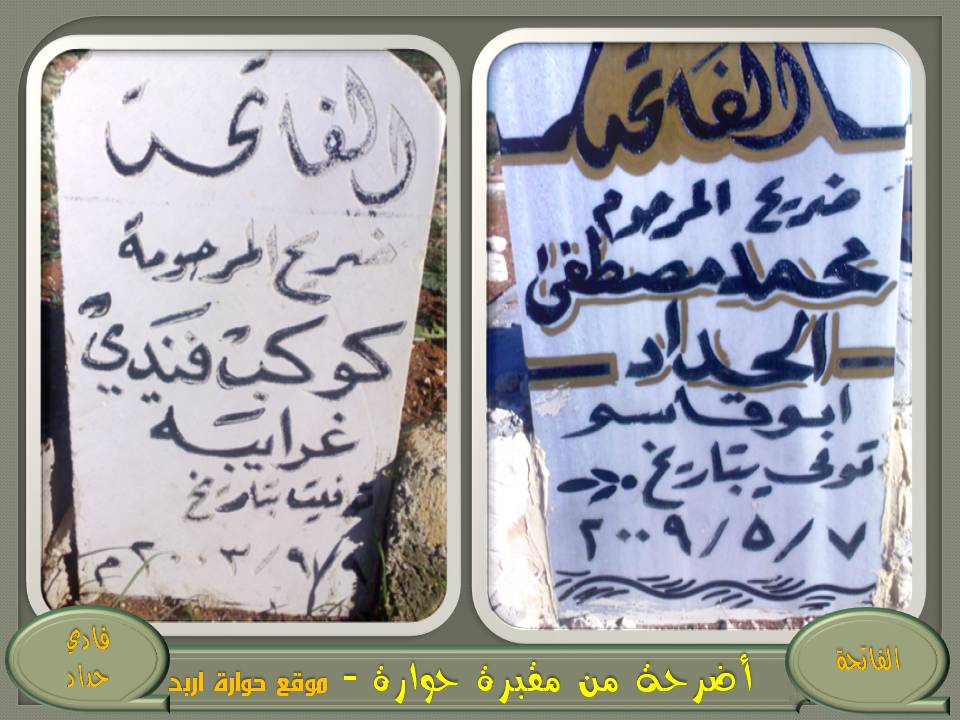 الفاتحة
ضريح المرحوم
محمد مصطفى
الحداد
ابو قاسم
توفي بتاريخ
٧/٥/٢٠٠٩
الفاتحة
ضريح المرحومة
كوكب فندي
غرايبه
توفيت بتاريخ
٩/٩/٢٠٠٣م
الفاتحة
أضرحة من مقبرة حوارة - موقع حوارة اربد
فادي
حداد